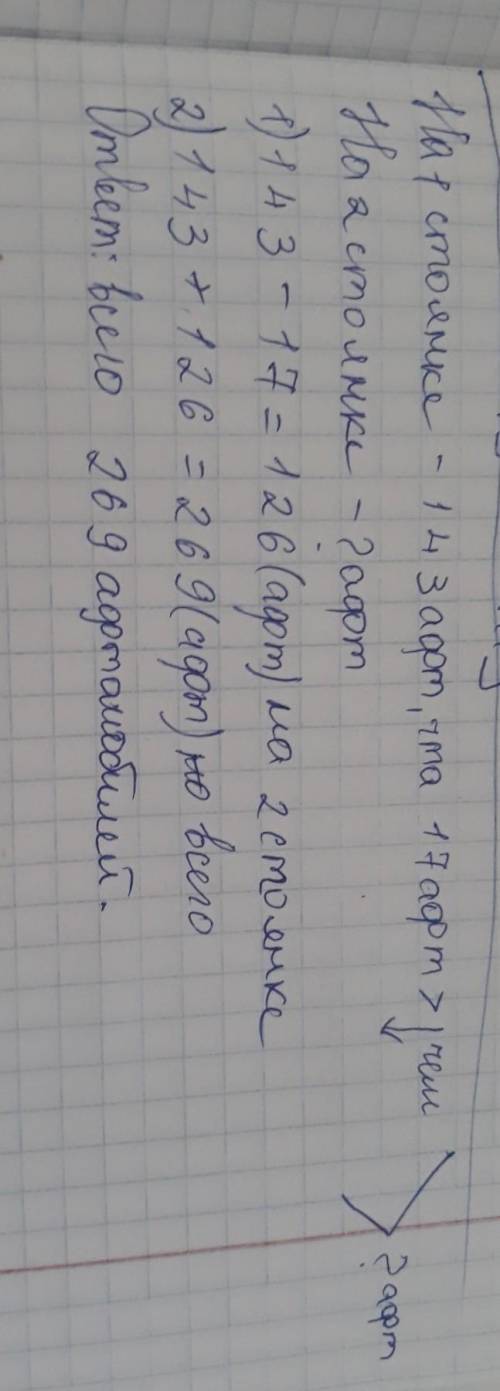 На 1 стоянке - 143 афт, чта 17 афт > чем
На 2 стоянке - ? афт
? афт
1) 143 - 17 = 126 (афт) на 2 стоянке
2) 143 + 126 = 269 (афт) но всего
Ответ: всего 269 афтамобилей.